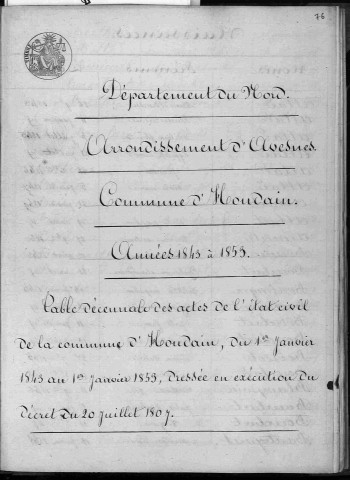 76
Département du Nord.
Arrondissement d'Avesnes.
Commune d'Houdain.
Années 1843 à 1853.
Table décennale des actes de l'état civil
de la commune d'Houdain, du 1er Janvier
1843 au 1er Janvier 1853, dressée en exécution du
décret du 20 juillet 1807.